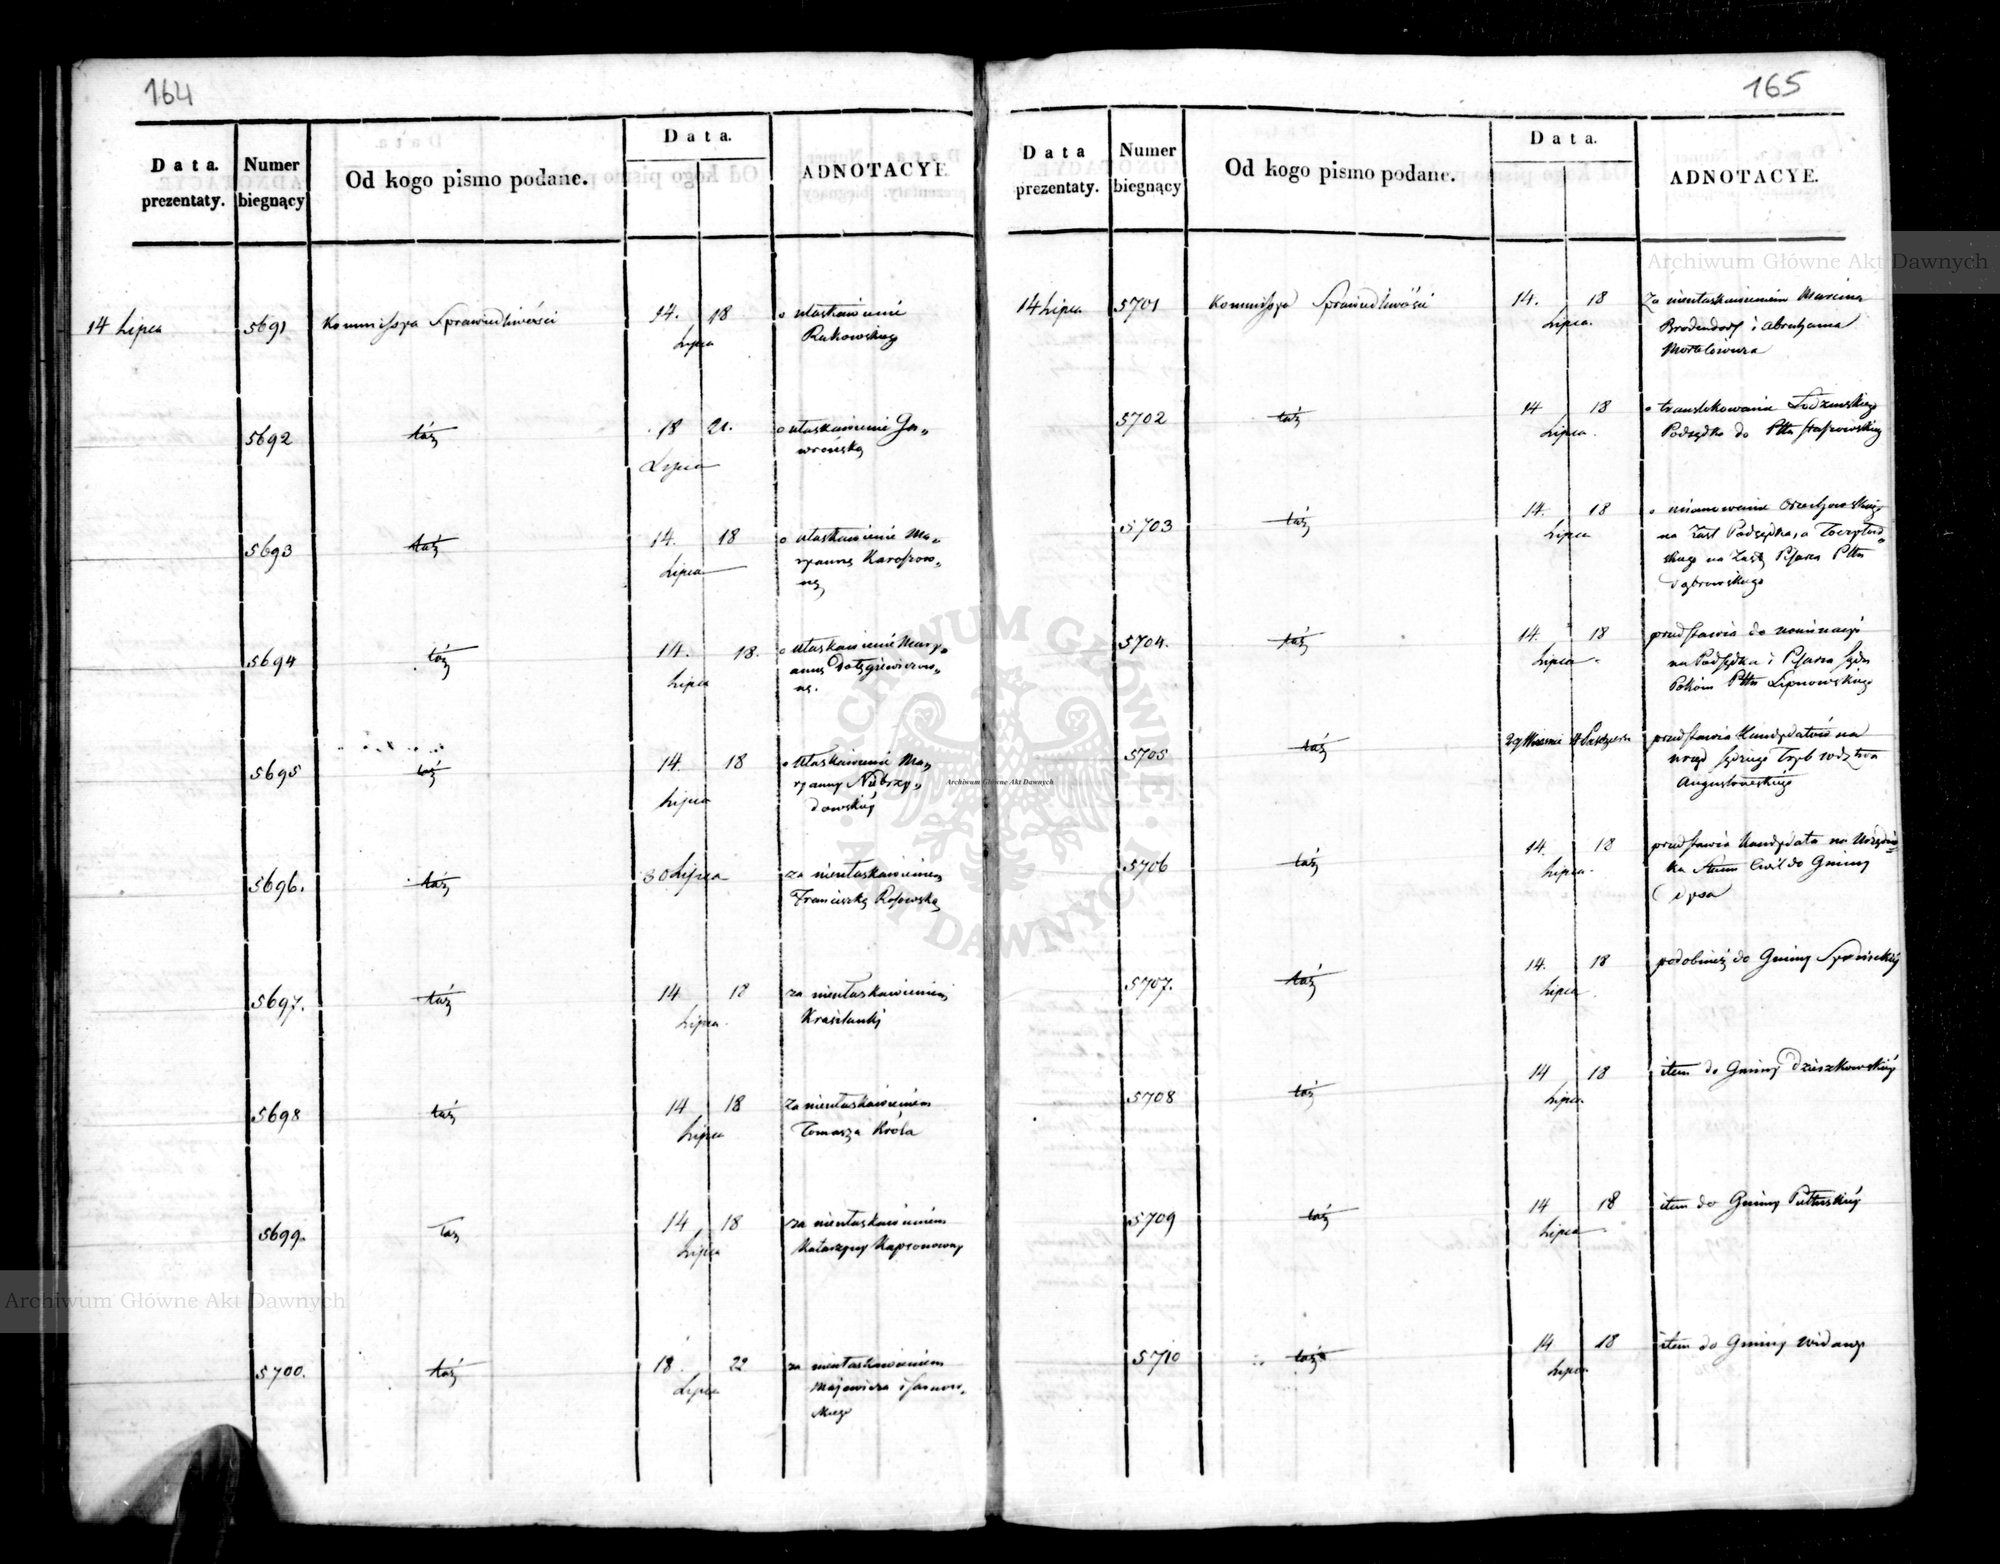 164
Data. prezentaty.
Numer biegnący
Od kogo pismo podane.
Data.
ADNOTACYE
14 Lipca 5691 Kommissya Sprawiedliwości 14. 18 o ułaskawienie
Lipca Rakowskiego
5692 taż 18 21. o ułaskawienie Ga„
Lipca wrońską
5693 taż 14. 18 o ułaskawienie Ma„
Lipca ryannę
5694 taż 14. 18. o ułaskawienie Mary„
Lipca annę
5695 taż 14. 18 o ułaskawienie Ma„
Lipca ryanny
dowskiej
5696. taż 30 Lipca za nieułaskawieniem
Franciszką
5697. taż 14 18 za nieułaskawieniem
Lipca
5698 taż 14 18 za nieułaskawieniem
Lipca Tomasza Króla
5699. taż 14 18 za nieułaskawieniem
Lipca Katarzyny
5700. taż 18. 22 za nieułaskawieniem
Lipca Majewicza i
skiego
165
Data prezentaty.
Numer biegnący
Od kogo pismo podane.
Data.
ADNOTACYE.
14 Lipca 5701 Kommissya Sprawiedliwości 14. 18 Za nieułaskawieniem Marcina
Lipca. i Abrahama
5702 taż 14 18 o translokowanie
Lipca. Podsędka do Pttu
5703 taż 14. 18 o mianowanie
Lipca na Zast Podsędka, a
skiego na Zastę Pisarza Pttu
Dąbrowskiego
5704. taż 14. 18 przedstawia do nominacyi
Lipca na Podsędka i Pisarza Sądu
Pokoiu Pttu Lipnowskiego
5705 taż 29 Września 4 Październ przedstawia Kandydatów na
urząd Sędziego Tryb wdztwa
Augustowskiego
5706 taż 14. 18 przedstawia Kandydata na Urzędni=
Lipca. ka Stanu Cywil do Gminy
5707. taż 14. 18 podobnież do Gminy
Lipca.
5708 taż 14 18 item do Gminy
Lipca
5709 taż 14 18 item do Gminy Pułtuskiej
Lipca
5710 taż 14 18 item do Gminy
Lipca
Archiwum Główne Akt Dawnych
Archiwum Główne Akt Dawnych
Archiwum Główne Akt Dawnych
ARCHIWUM GŁÓWNE AKT DAWNYCH